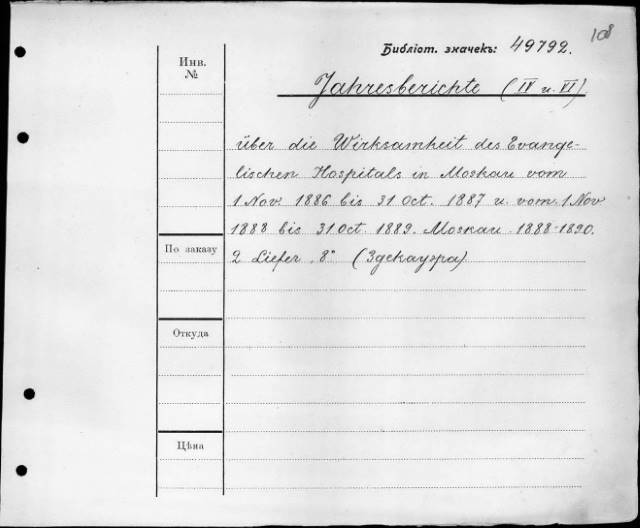 108
Библіот. значекъ: 49792.
Инв.
№
Jahresberichte (IV u. VI)
über die Wirksamkeit des Evange-
lischen Hospitals in Moskau vom
1 Nov. 1886 bis 31 Oct. 1887 u. vom 1 Nov
1888 bis 31 Oct. 1889. Moskau 1888-1890.
По заказу
2 Liefer „8° (Здекауэра)
Откуда
Цѣна